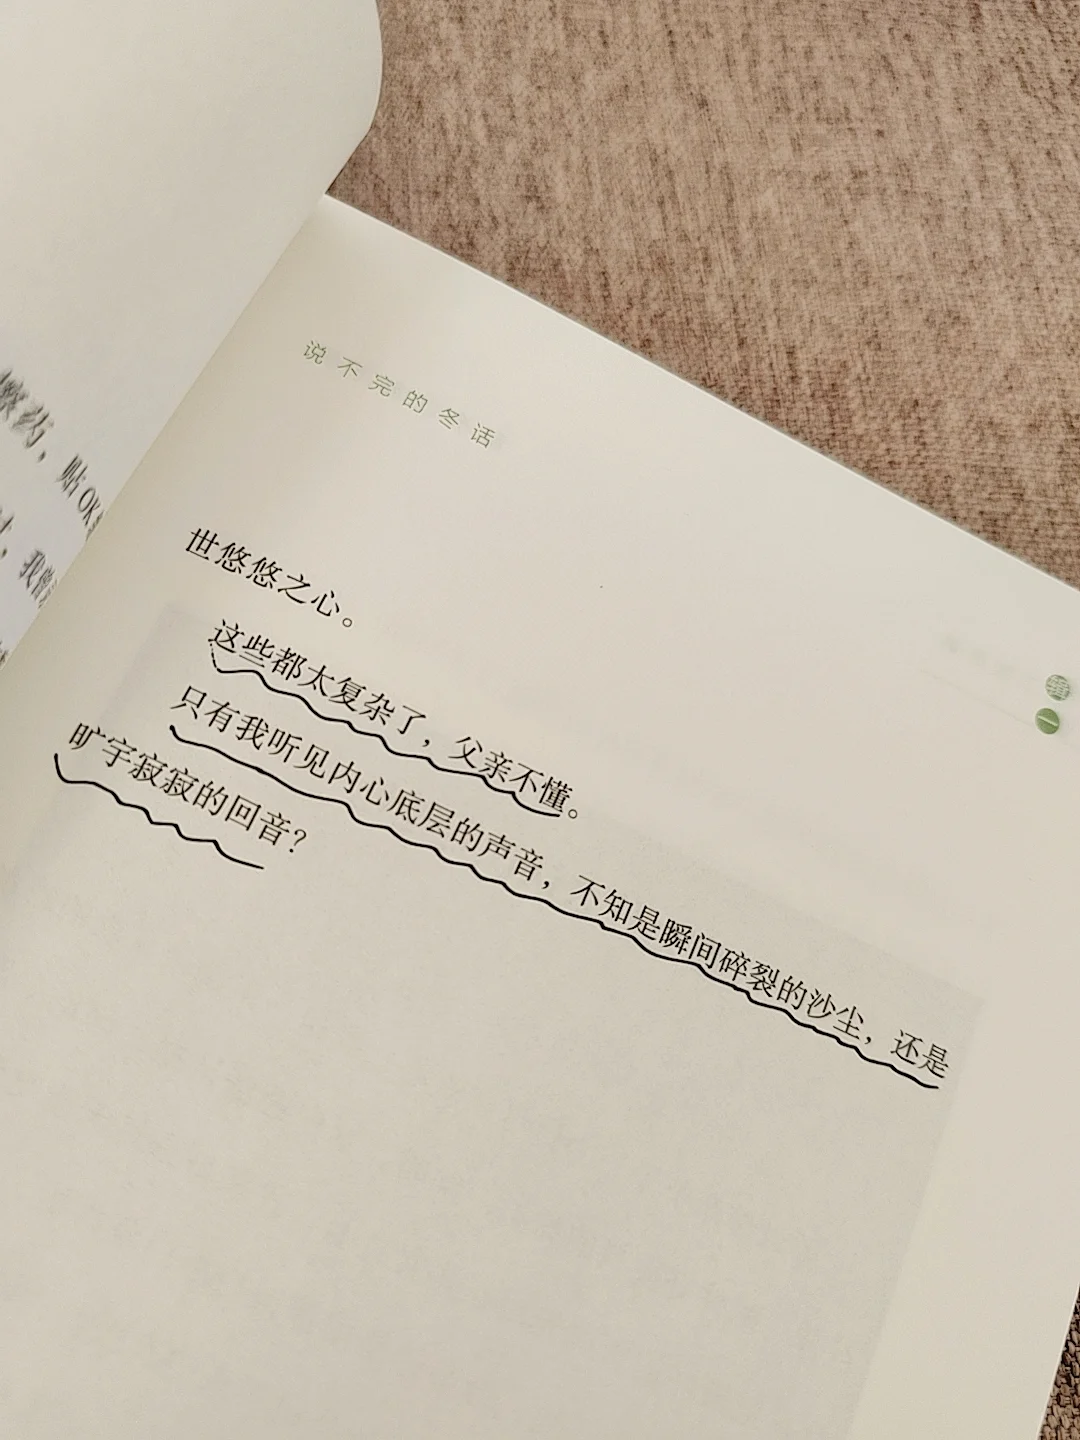 擦药，贴OK
我曾
说不完的冬话
辑一
世悠悠之心。
这些都太复杂了，父亲不懂。
只有我听见内心底层的声音，不知是瞬间碎裂的沙尘，还是
旷宇寂寂的回音？